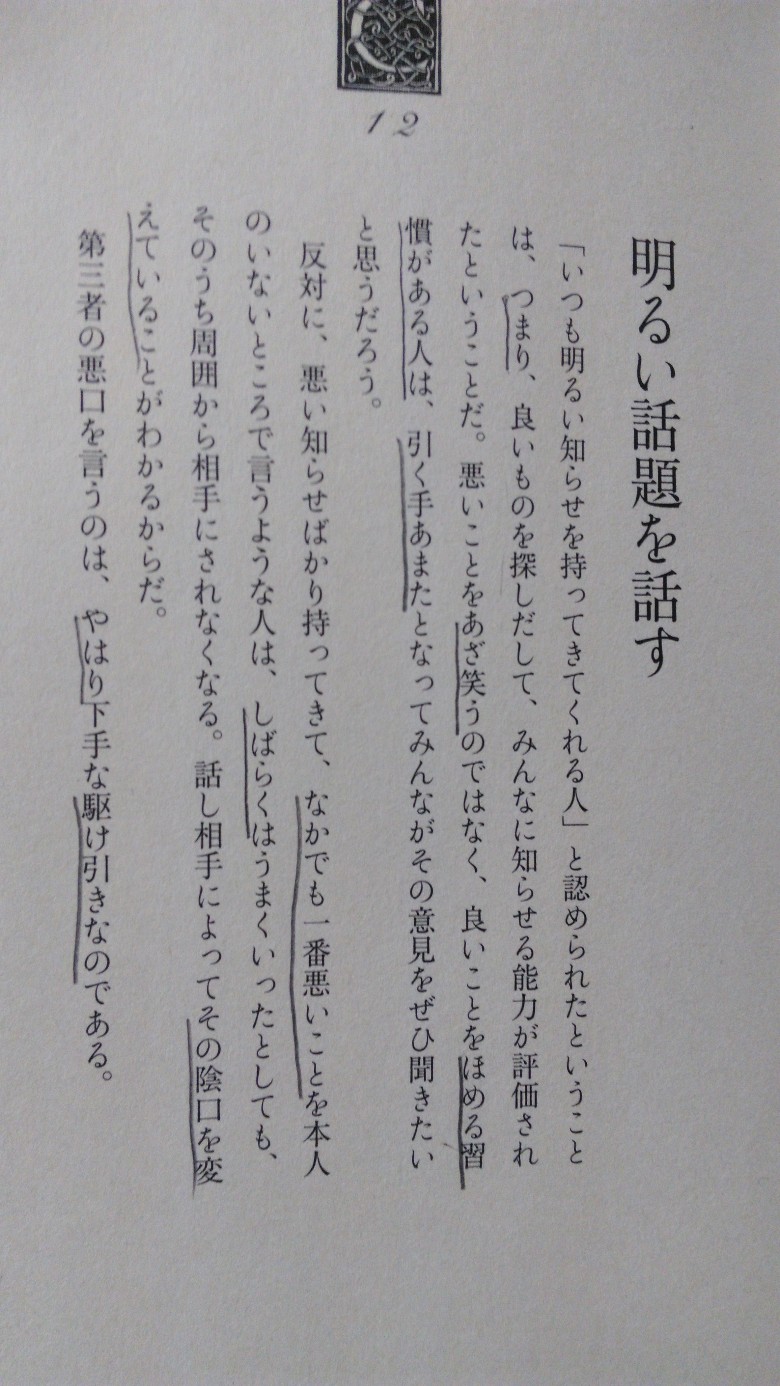 12
明るい話題を話す
「いつも明るい知らせを持ってきてくれる人」と認められたということ
は、つまり、良いものを探しだして、みんなに知らせる能力が評価され
たということだ。悪いことをあざ笑うのではなく、良いことをほめる習
慣がある人は、引く手あまたとなってみんながその意見をぜひ聞きたい
と思うだろう。
反対に、悪い知らせばかり持ってきて、なかでも一番悪いことを本人
のいないところで言うような人は、しばらくはうまくいったとしても、
そのうち周囲から相手にされなくなる。話し相手によってその陰口を変
えていることがわかるからだ。
第三者の悪口を言うのは、やはり下手な駆け引きなのである。